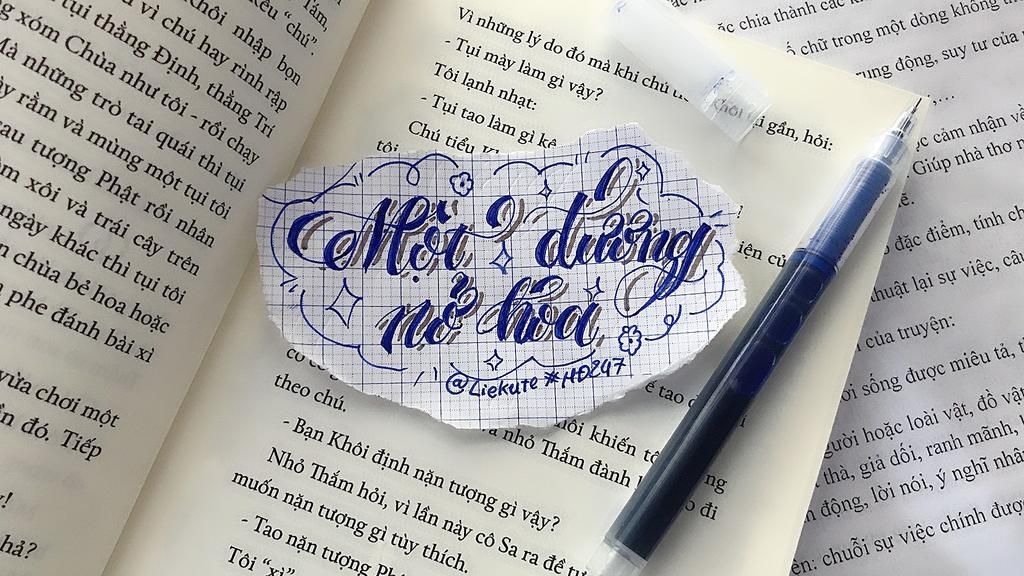 Tắm,
kêu "chú"
Mỗi chú nhập bọn
tụi thằng Định, thằng Trí
vì chú hay rình rập
ng xóm Chùa như tôi - rồi chạy
Mà những trò tai quái thì tụi
ầy rằm và mùng một tụi tôi
sau tượng Phật rồi nhân
m xôi và trái cây trên
ngày khác thì tụi tôi
n chùa bẻ hoa hoặc
phe đánh bài xì
vừa chơi một
ần đó. Tiếp
y!
hả?
Vì những lý do đó mà khi chú
- Tụi mày làm gì vậy?
Tôi lạnh nhạt:
- Tụi tao làm gì kệ
Chú tiểu
tôi
gần, hỏi:
Một đường
nở hoa
@Liekute #HĐ247
theo chú.
- Bạn Khôi định nặn tượng gì vậy?
Nhỏ Thắm hỏi, vì lần này cô Sa ra đề
muốn nặn tượng gì tùy thích.
- Tao nặn tượng
Tôi "xì"
khiến
nhỏ Thắm đành
chia thành các
chữ trong một dòng không
rung động, suy tư của
cảm nhận về
Giúp nhà thơ
đặc điểm, tính
thuật lại sự việc,
của truyện:
sống được miêu tả,
người hoặc loài vật, đồ vật
thà, giả dối, ranh mãnh,
động, lời nói, ý nghĩ
chuỗi sự việc chính được